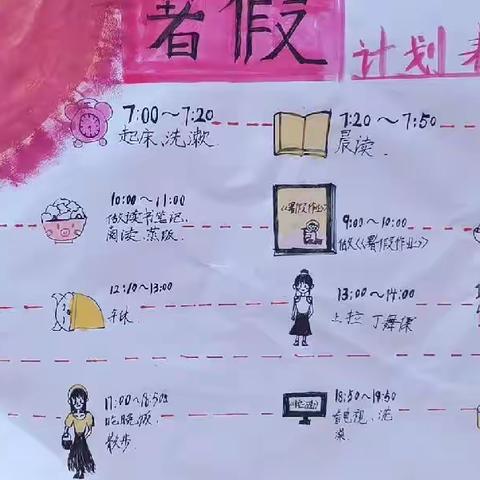 暑假
计划表
7:00～7:20
起床、洗漱
7:20～7:50
晨读
10:00～11:00
做读书笔记、
阅读、蒸饭
《暑假作业》
9:00～10:00
做《暑假作业》
12:10～13:00
午休
13:00～14:00
上拉丁舞课
17:00～18:50
吃晚饭、
散步
18:50～19:50
看电视、洗
澡